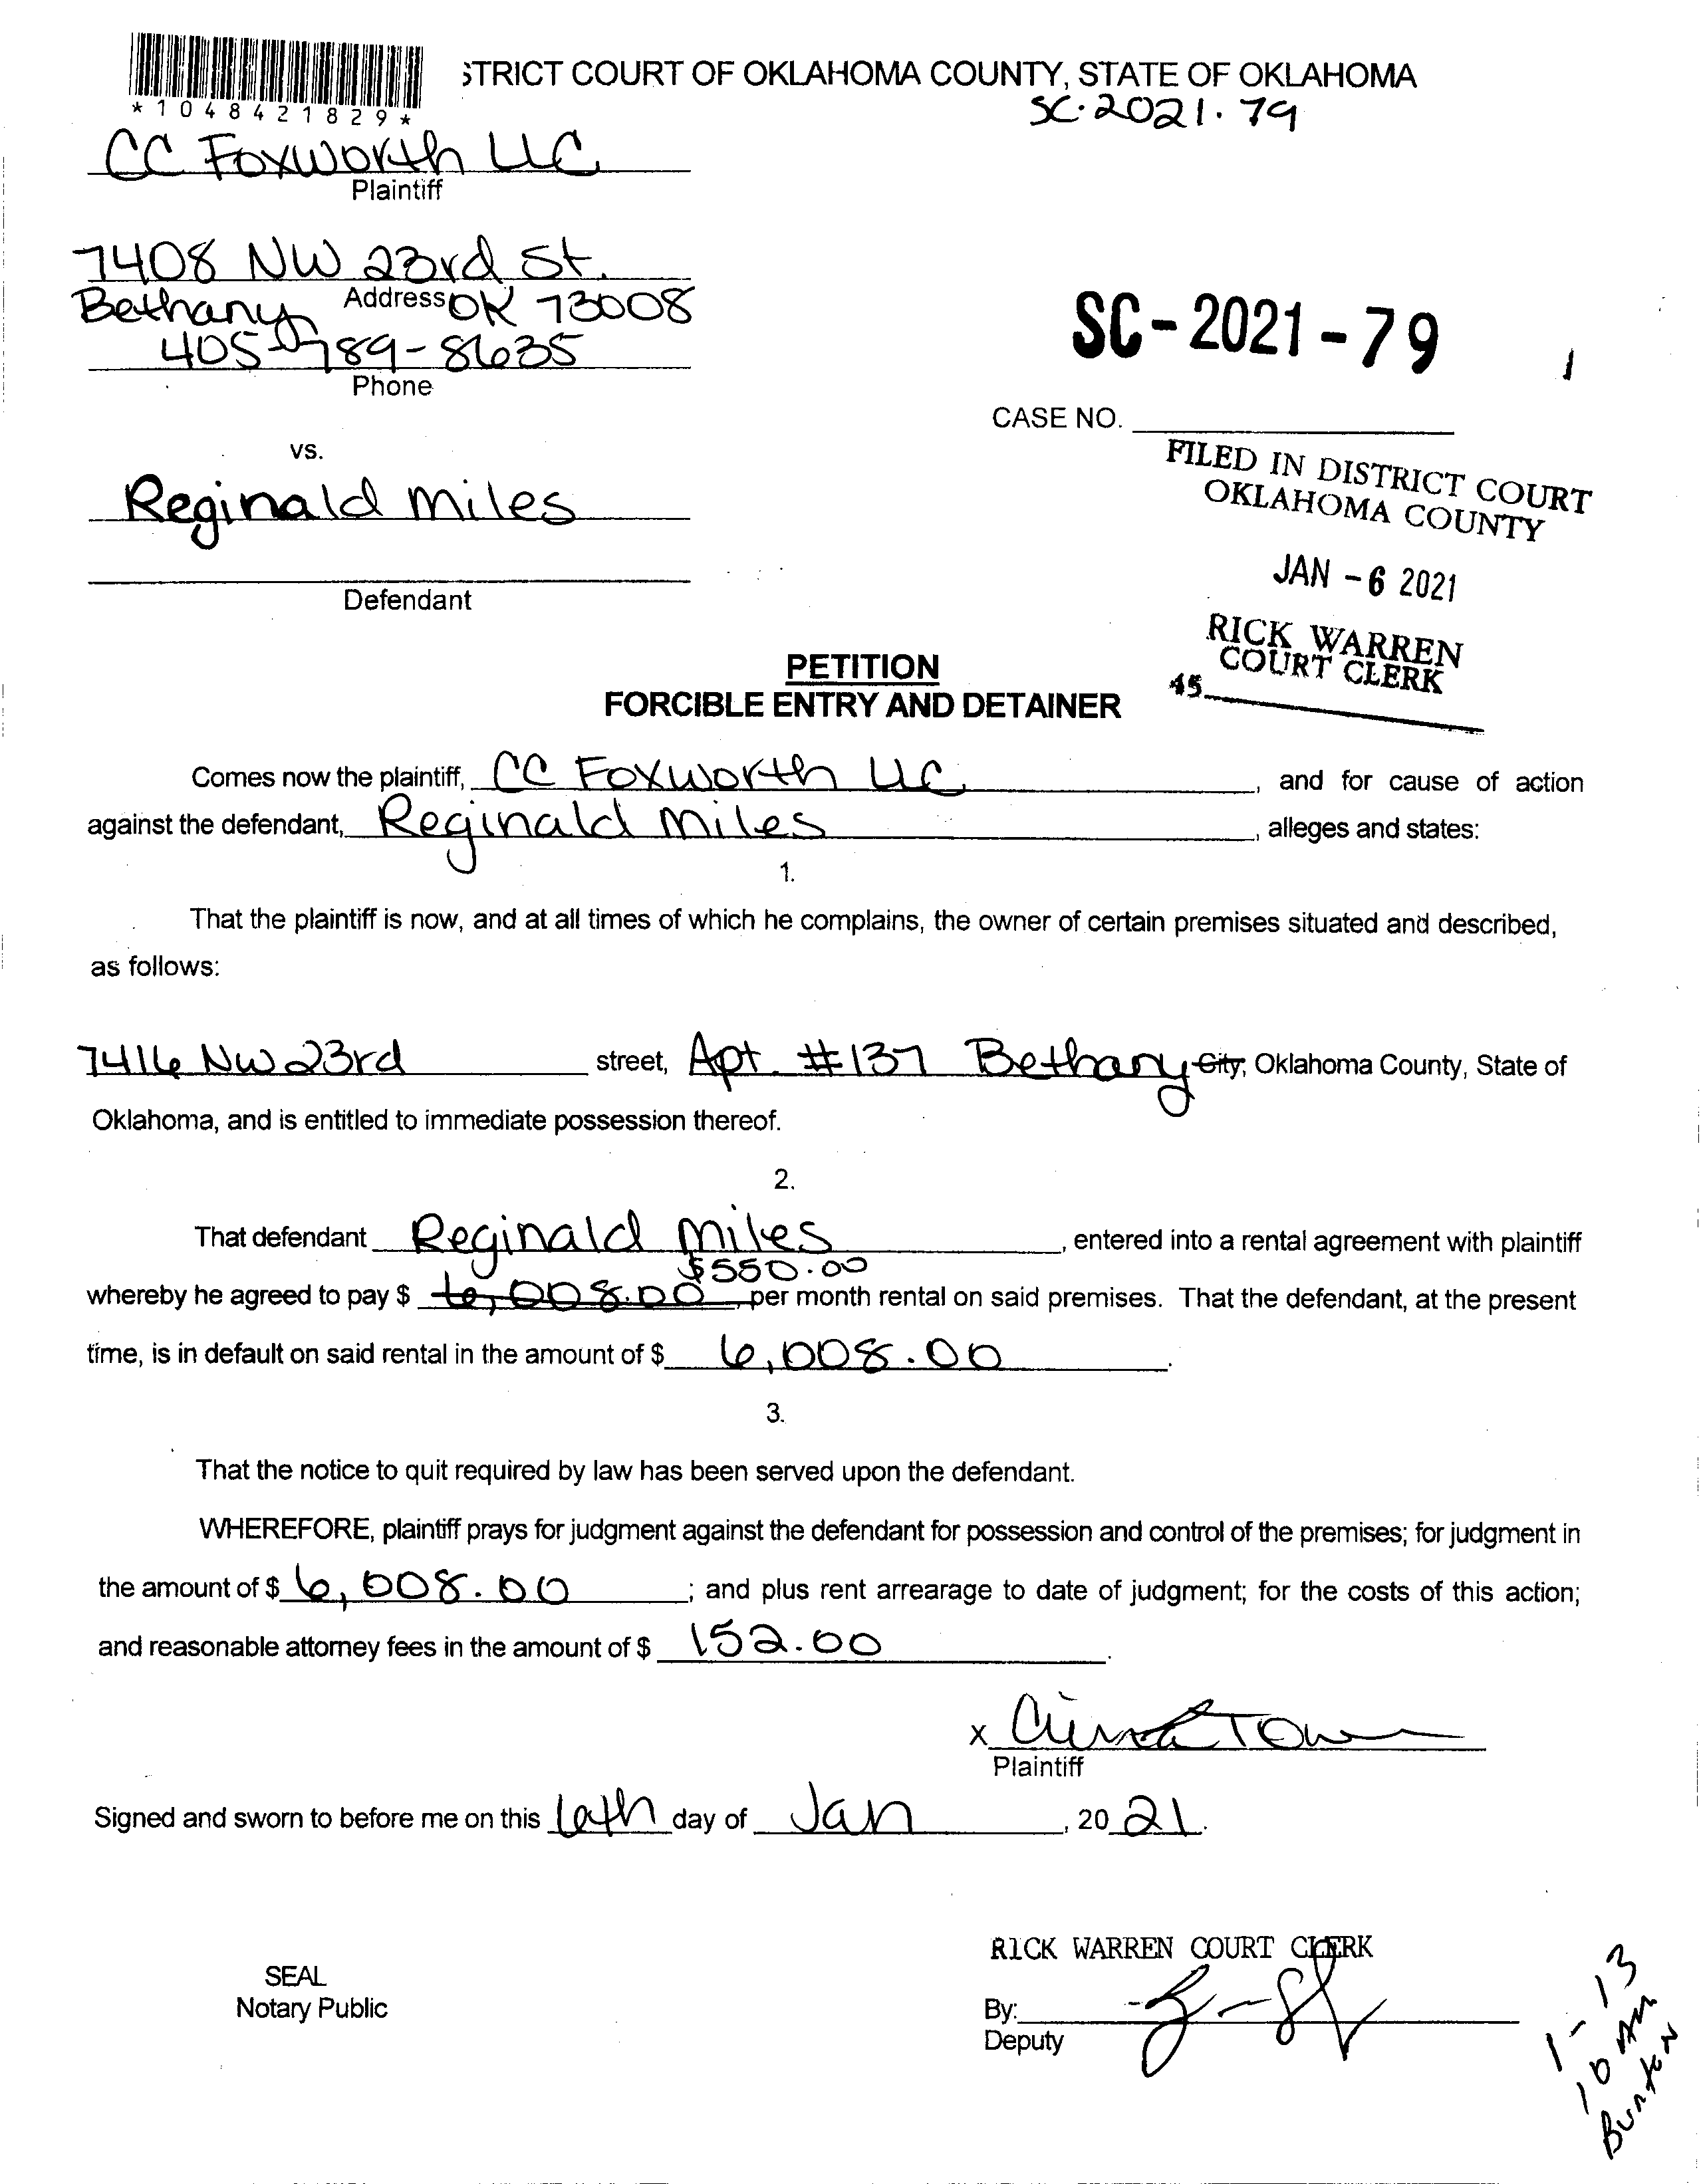 STRICT COURT OF OKLAHOMA COUNTY, STATE OF OKLAHOMA
*1048421829*
SC-2021-79
CC Foxworth LLC
Plaintiff
7408 NW 23rd St.
Address
Bethany OK 73008
405-789-8635
Phone
SC-2021-79
CASE NO.
vs.
FILED IN DISTRICT COURT
OKLAHOMA COUNTY
Reginald Miles
JAN -6 2021
Defendant
RICK WARREN
COURT CLERK
45
PETITION
FORCIBLE ENTRY AND DETAINER
Comes now the plaintiff, CC Foxworth LLC, and for cause of action
against the defendant, Reginald Miles, alleges and states:
1.
That the plaintiff is now, and at all times of which he complains, the owner of certain premises situated and described,
as follows:
7416 NW 23rd street, Apt. #137 Bethany City, Oklahoma County, State of
Oklahoma, and is entitled to immediate possession thereof.
2.
That defendant Reginald Miles, entered into a rental agreement with plaintiff
$550.00
whereby he agreed to pay $ 6,008.00, per month rental on said premises. That the defendant, at the present
time, is in default on said rental in the amount of $ 6,008.00.
3.
That the notice to quit required by law has been served upon the defendant.
WHEREFORE, plaintiff prays for judgment against the defendant for possession and control of the premises; for judgment in
the amount of $ 6,008.00; and plus rent arrearage to date of judgment; for the costs of this action;
and reasonable attorney fees in the amount of $ 152.00.
x
Plaintiff
Signed and sworn to before me on this 6th day of Jan, 2021.
RICK WARREN COURT CLERK
SEAL
Notary Public
By:
Deputy
1-13
10 AM
Burton